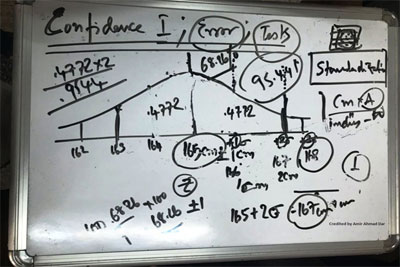 Confidence I; Error; Tests
.4772x2
.9544
68.26
95.44%
.4772
.4772
1 Cm
162
163
164
165cm
± 1cm
166
167
168
1cm
2cm
I
68.26 x 100
1
68.26 ±1
165+2σ = 167cm
Credited by Amir Ahmad Dar